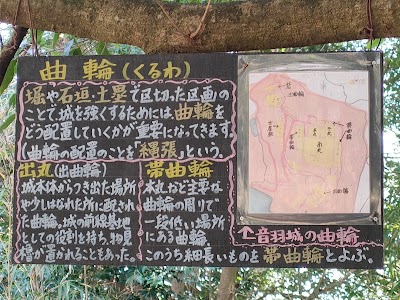 曲輪(くるわ)
堀や石垣、土塁で区切った区画の
ことで、城を強くするためには、曲輪を
どう配置していくかが重要になってきます。
(曲輪の配置のことを「縄張」という。
出丸(出曲輪)
城本体からつき出た場所
や少しはなれた所に配され
た曲輪。城の前線基地
としての役割を持ち、物見
櫓が置かれることもあった。
帯曲輪
本丸など主要な
曲輪の周りで
一段低い場所
にある曲輪。
このうち細長いものを帯曲輪とよぶ。
↑音羽城の曲輪